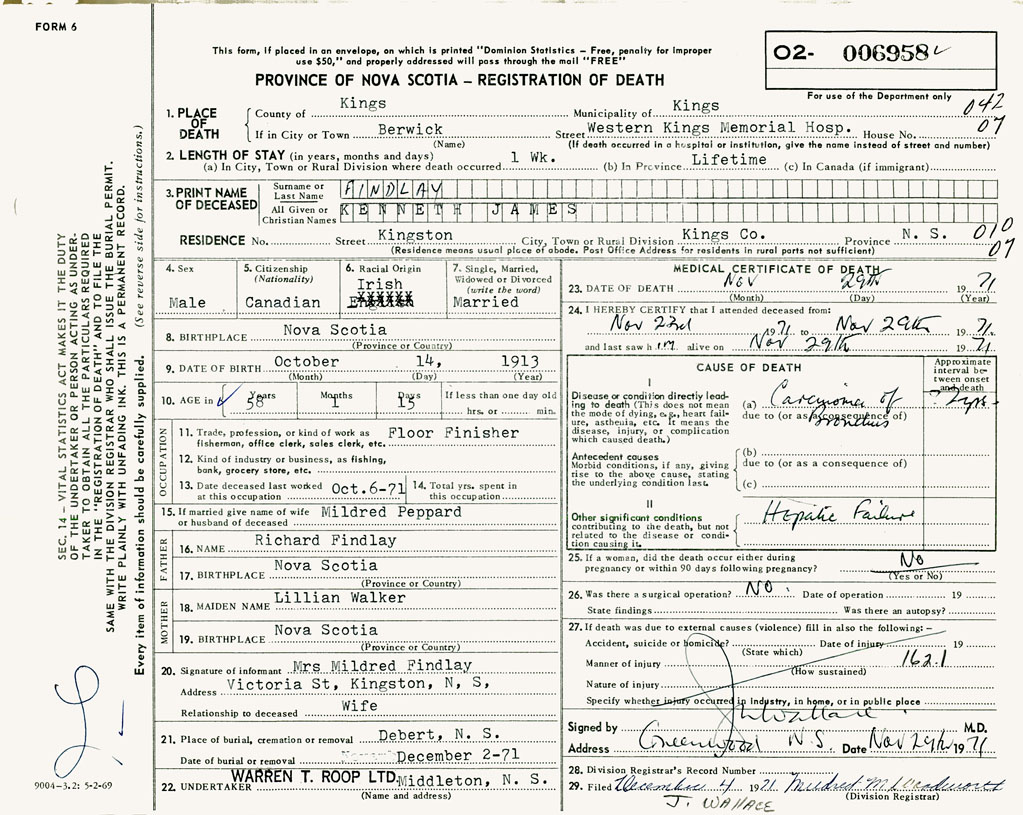 FORM 6
This form, if placed in an envelope, on which is printed "Dominion Statistics – Free, penalty for improper
use $50," and properly addressed will pass through the mail "FREE"
PROVINCE OF NOVA SCOTIA – REGISTRATION OF DEATH
O2- 006958
For use of the Department only
042
07
1. PLACE OF DEATH
County of Kings Municipality of Kings
If in City or Town Berwick Street Western Kings Memorial Hosp. House No.
(Name) (If death occurred in a hospital or institution, give the name instead of street and number)
2. LENGTH OF STAY (in years, months and days)
(a) In City, Town or Rural Division where death occurred 1 Wk. (b) In Province Lifetime (c) In Canada (if immigrant)
3. PRINT NAME OF DECEASED
Surname or Last Name FINDLAY
All Given or Christian Names KENNETH JAMES
RESIDENCE No. Street Kingston City, Town or Rural Division Kings Co. Province N. S.
(Residence means usual place of abode. Post Office Address for residents in rural parts not sufficient)
010
07
4. Sex
Male
5. Citizenship
(Nationality)
Canadian
6. Racial Origin
Irish
7. Single, Married,
Widowed or Divorced
(write the word)
Married
8. BIRTHPLACE Nova Scotia
(Province or Country)
9. DATE OF BIRTH October 14, 1913
(Month) (Day) (Year)
10. AGE in Years Months Days If less than one day old
58 1 15 hrs. or min.
OCCUPATION
11. Trade, profession, or kind of work as
fisherman, office clerk, sales clerk, etc. Floor Finisher
12. Kind of industry or business, as fishing,
bank, grocery store, etc.
13. Date deceased last worked
at this occupation Oct.6-71
14. Total yrs. spent in
this occupation
15. If married give name of wife
or husband of deceased Mildred Peppard
FATHER
16. NAME Richard Findlay
17. BIRTHPLACE Nova Scotia
(Province or Country)
MOTHER
18. MAIDEN NAME Lillian Walker
19. BIRTHPLACE Nova Scotia
(Province or Country)
20. Signature of informant Mrs Mildred Findlay
Address Victoria St, Kingston, N, S,
Relationship to deceased Wife
21. Place of burial, cremation or removal Debert, N. S.
Date of burial or removal December 2-71
22. UNDERTAKER WARREN T. ROOP LTD. Middleton, N. S.
(Name and address)
MEDICAL CERTIFICATE OF DEATH
23. DATE OF DEATH Nov 29th 1971
(Month) (Day) (Year)
24. I HEREBY CERTIFY that I attended deceased from:
Nov 23rd 1971 to Nov 29th 1971
and last saw him alive on Nov 29th 1971
CAUSE OF DEATH
Approximate
interval be-
tween onset
and death
I
Disease or condition directly lead-
ing to death (This does not mean
the mode of dying, e.g., heart fail-
ure, asthenia, etc. It means the
disease, injury, or complication
which caused death.)
(a) Carcinoma of
bronchus
due to (or as a consequence of)
Antecedent causes
Morbid conditions, if any, giving
rise to the above cause, stating
the underlying condition last.
(b)
due to (or as a consequence of)
(c)
II
Other significant conditions
contributing to the death, but not
related to the disease or condi-
tion causing it.
Hepatic Failure
25. If a woman, did the death occur either during
pregnancy or within 90 days following pregnancy? No
(Yes or No)
26. Was there a surgical operation? NO Date of operation 19
State findings Was there an autopsy?
27. If death was due to external causes (violence) fill in also the following:–
Accident, suicide or homicide? Date of injury 19
(State which)
Manner of injury 162.1
(How sustained)
Nature of injury
Specify whether injury occurred in industry, in home, or in public place
Signed by J. Wallace M.D.
Address Greenwood N.S Date Nov 29th 1971
28. Division Registrar's Record Number
29. Filed December 4 1971 Mildred M Woodworth
(Division Registrar)
J. WALLACE
SEC. 14 – VITAL STATISTICS ACT MAKES IT THE DUTY
OF THE UNDERTAKER OR PERSON ACTING AS UNDER-
TAKER TO OBTAIN ALL THE PARTICULARS REQUIRED
IN THE "REGISTRATION OF DEATH" AND TO FILE THE
SAME WITH THE DIVISION REGISTRAR WHO SHALL ISSUE THE BURIAL PERMIT.
WRITE PLAINLY WITH UNFADING INK. THIS IS A PERMANENT RECORD.
Every item of information should be carefully supplied. (See reverse side for instructions.)
9004-3.2: 5-2-69